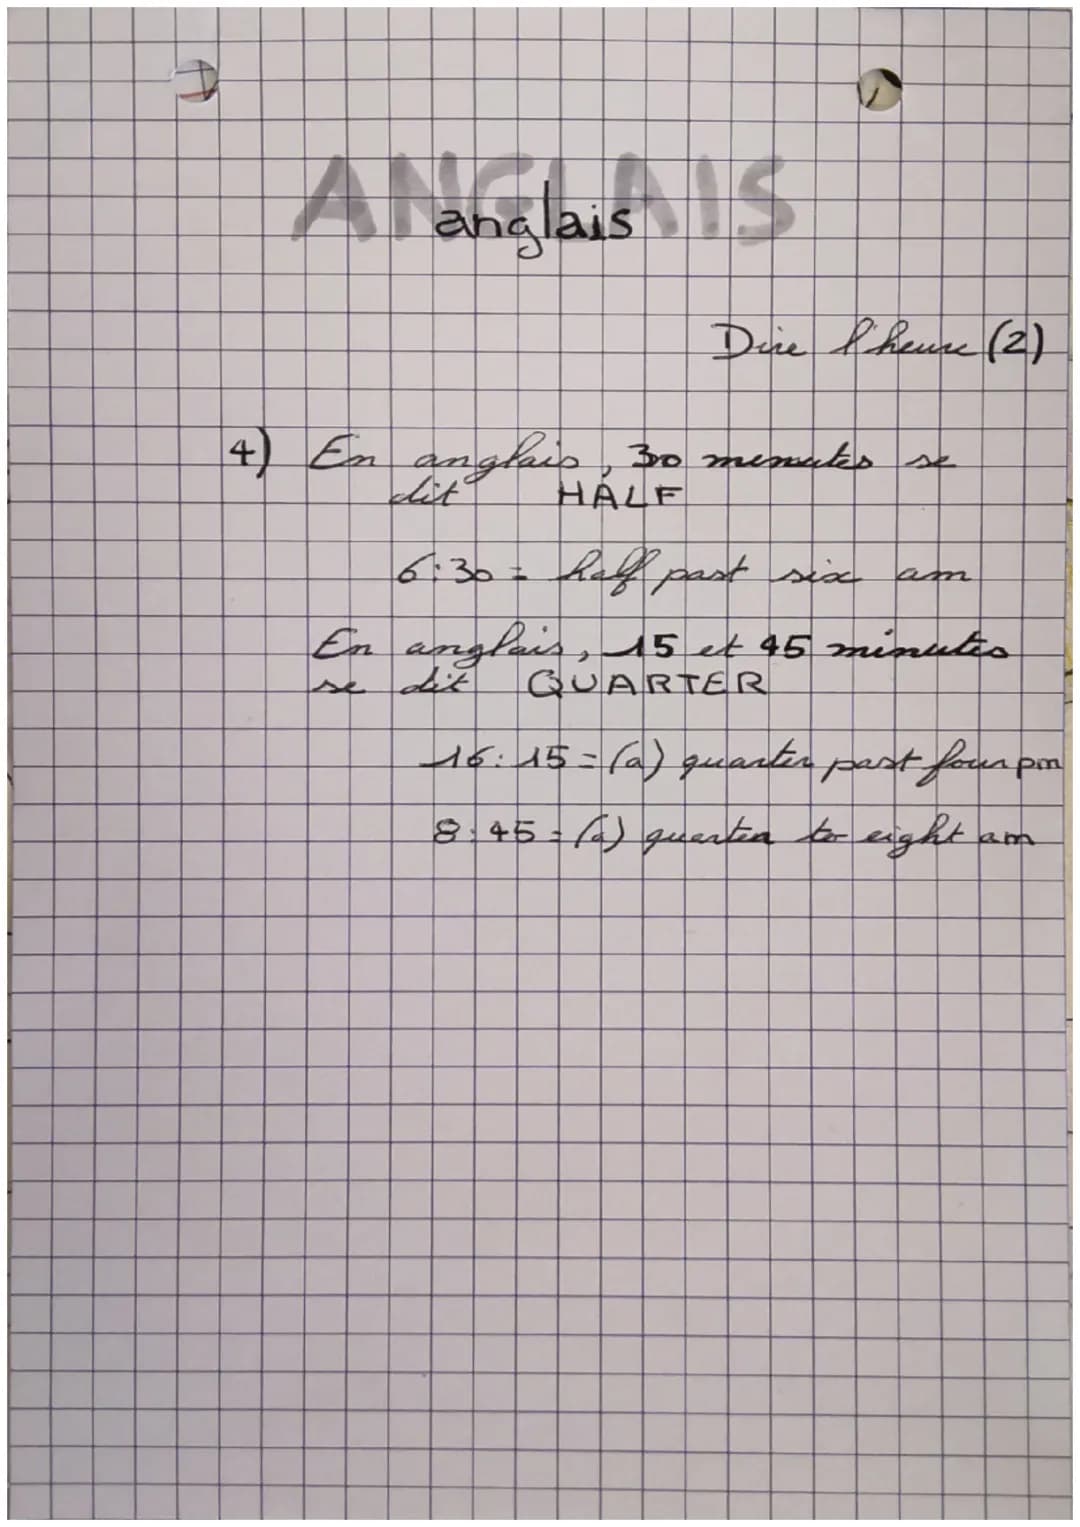 ANGLAIS
anglais
Dire l'heure (2)
4) En anglais, 30 minutes se
dit HALF
6:30 = half past six am
En anglais, 15 et 45 minutes
se dit QUARTER
16:15 = (a) quarter past four pm
8:45 = (a) quarter to eight am